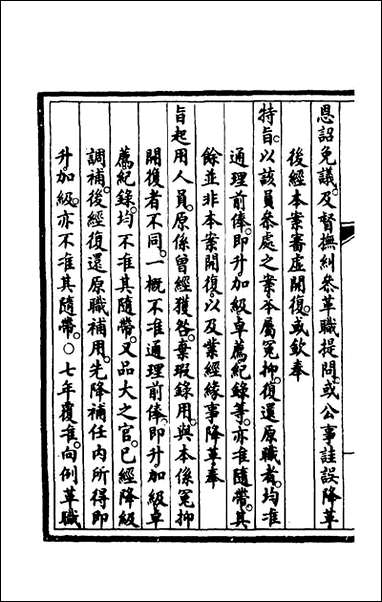 恩詔免議。及督撫糾參革職提問。或公事詿誤降革
後經本案審虛開復。或欽奉
特旨。以該員參處之案。本屬冤抑。復還原職者。均准
通理前俸。即升加級卓薦紀錄等。亦准隨帶。其
餘並非本案開復。以及業經緣事降革奉
旨起用人員。原係曾經獲咎。棄瑕錄用。與本係冤抑
開復者不同。一概不准通理前俸。即升加級卓
薦紀錄。均不准其隨帶。又品大之官。已經降級
調補。後經復還原職補用。先降補任內所得即
升加級。亦不准其隨帶。○七年覆准。向例革職